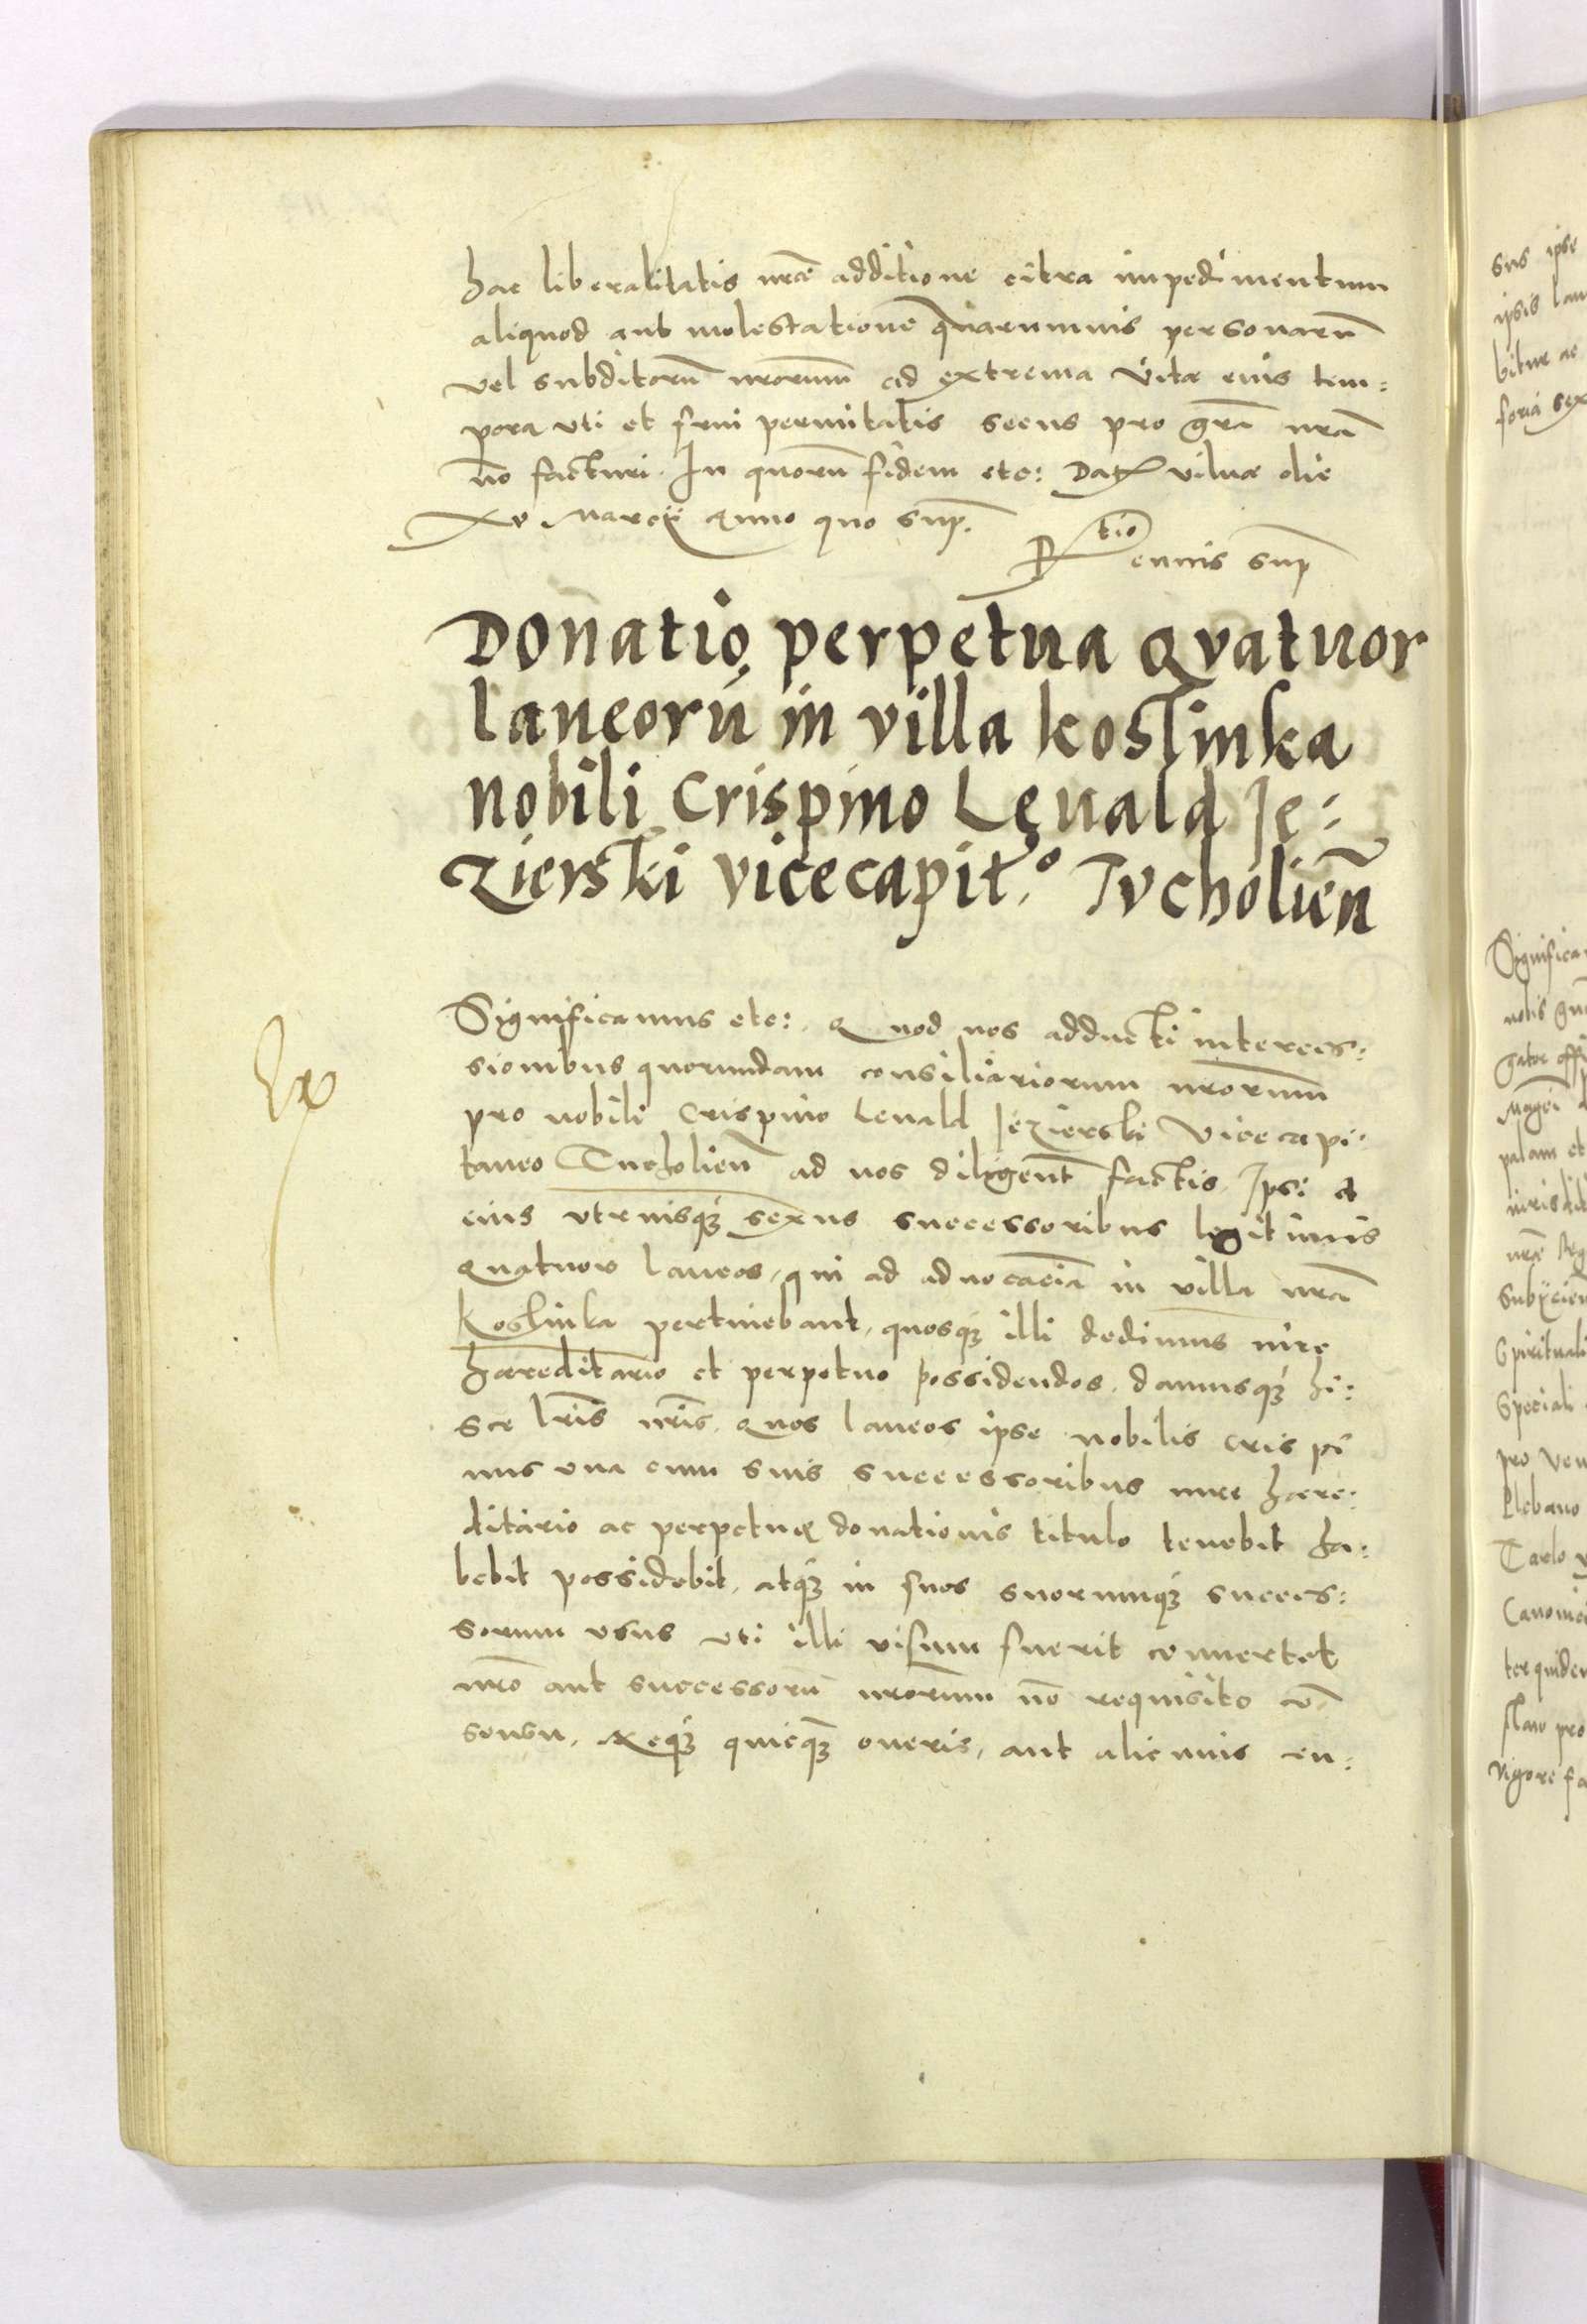 hac liberalitatis nrae additione citra impedimentum
aliquod aut molestatione quarumuis personarū
vel subditorū nrorum ad extrema vitae eius tem:
pora vti et frui permittatis secus pro grā nrā
nō facturi. In quorū fidem etc: Dat vilnae die
xv Marcij Anno quo sup.
R tio
eiusdem sup
Donatio perpetua Qvatuor
laneorū in villa koslinka
nobili Crispino Leuald Je:
zierski vicecapit.º Tvcholien̄
Significamus etc: Quod nos adducti interces:
sionibus quorundam consiliariorum nrorum
pro nobili Crispino Leuald Jezierski Vicecapi:
taneo Tucholien̄ ad nos diligent factis Ipsi et
eius vtriusq̧ sexus successoribus legitimis
Quatuor laneos, qui ad aduocaciā in villa nrā
Koslinka pertinebant, quosq̧ illi dedimus iure
haereditario et perpetuo possidendos. damusq̧ hi:
sce lris nris. Quos laneos ipse nobilis Crispi
nus vna cum suis successoribus iure haere:
ditario ac perpetuae donationis titulo tenebit ha:
bebit possidebit, atq̧ in suos suorumq̧ succes:
sorum vsus vti illi visum fuerit conuertet
nro aut successorū nrorum nō requisito cō
sensu. Neq̧ quicq̄ oneris, aut alicuius cu:
sus ipse
ipsis lan
bitur ac
foria sex
Significa
nobis
gator offi
Magci
palam et
nrae Reg
Subijcien
Spirituali
Speciali
pro ven
Plebano
Carlo
Canonic
ter quidem
slaw pro
vigore fa